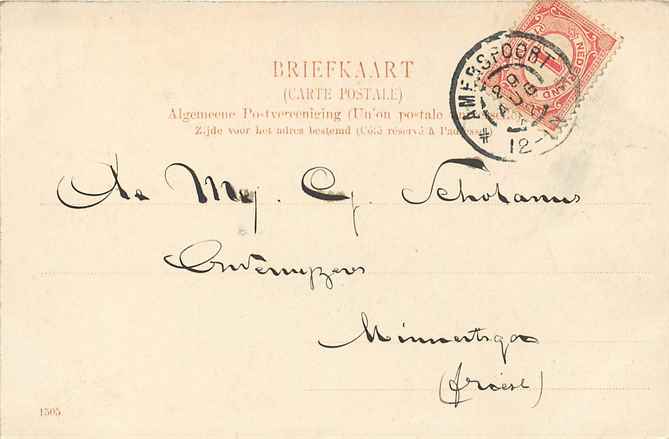 BRIEFKAART
(CARTE POSTALE)
Algemeene Postvereeniging (Union postale
Zijde voor het adres bestemd (Côté réservé à l'adresse)
NEDERLAND
1
AMERSFOORT
12-
De Mej. Cg. Schotanus
Onderwijzeres
Minnertsga
(Friesl)
1505